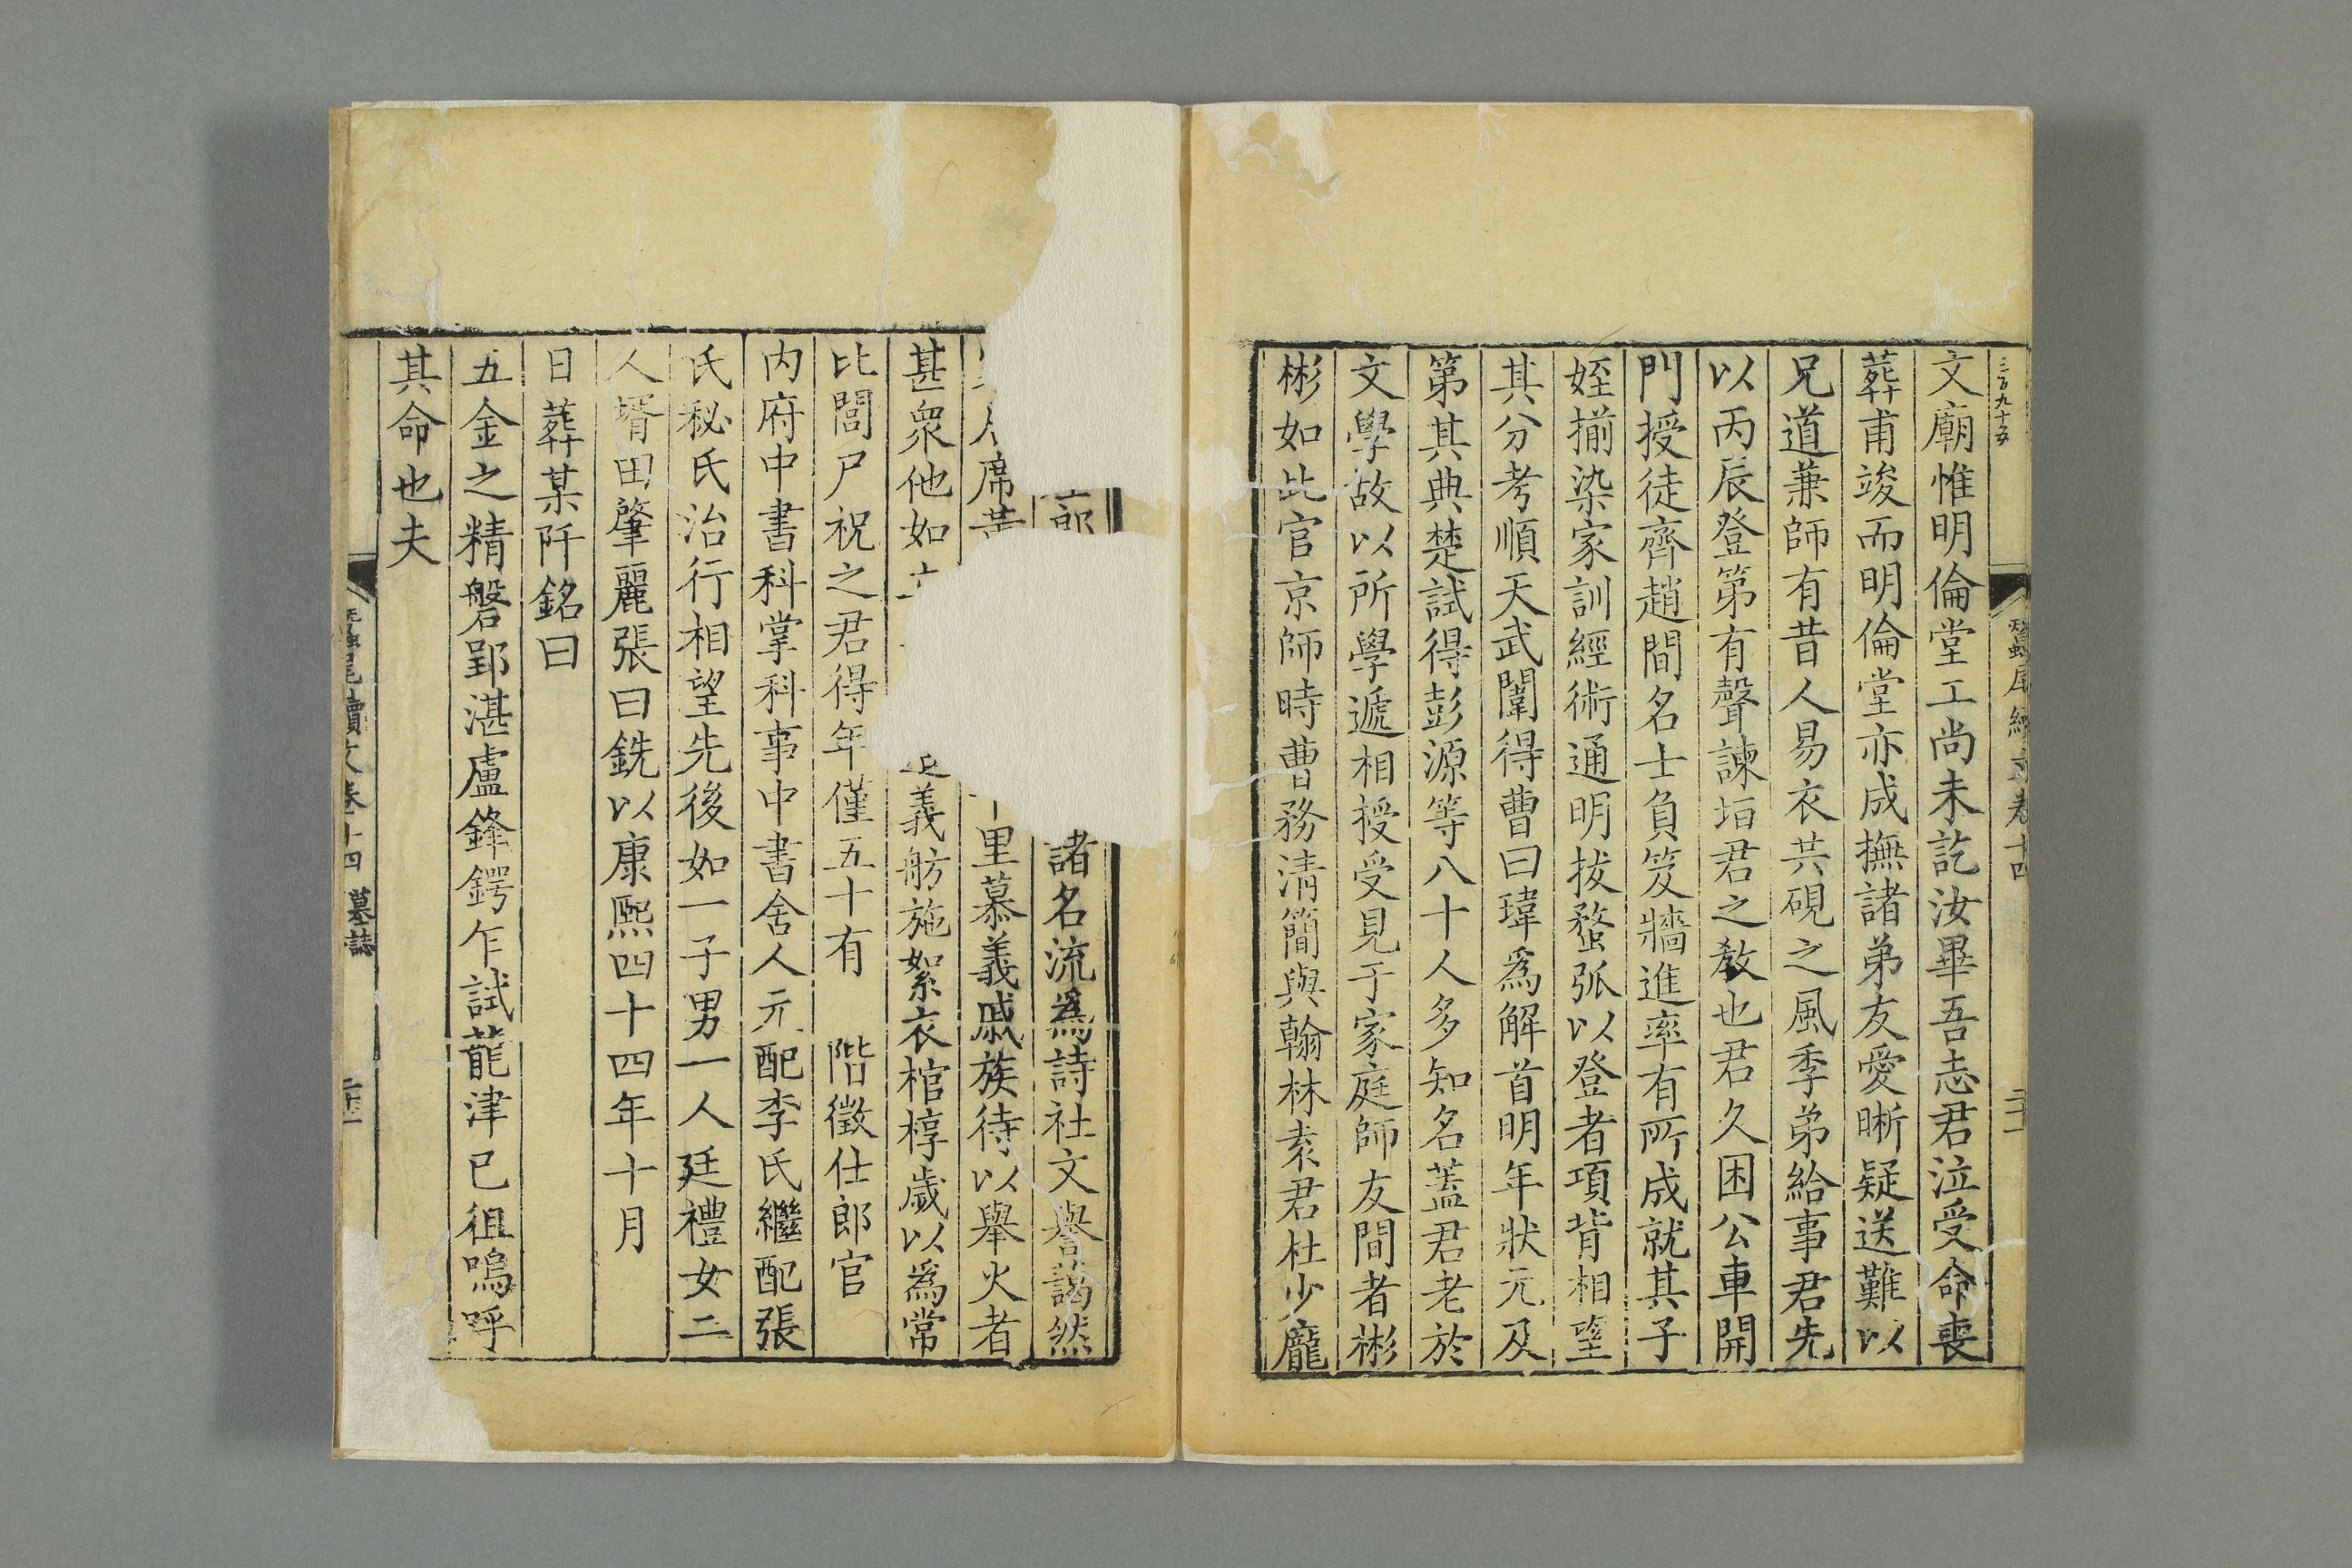 三百九十五
蠶尾續文卷十四
二十一
文廟惟明倫堂工尚未訖汝畢吾志君泣受命喪
葬甫竣而明倫堂亦成撫諸弟友愛晰疑送難以
兄道兼師有昔人易衣共硯之風季弟給事君先
以丙辰登第有聲諫垣君之教也君久困公車開
門授徒齊趙間名士負笈牆進率有所成就其子
姪揃染家訓經術通明拔蝥弧以登者項背相望
其分考順天武闈得曹曰瑋爲解首明年狀元及
第其典楚試得彭源等八十人多知名蓋君老於
文學故以所學遞相授受見于家庭師友間者彬
彬如此官京師時曹務清簡與翰林袁君杜少龐
諸名流爲詩社文譽藹然
席 里慕義戚族待以舉火者
甚衆他如 義舫施絮衣棺椁歲以爲常
比閭尸祝之君得年僅五十有 階徵仕郎官
内府中書科掌科事中書舍人元配李氏繼配張
氏秘氏治行相望先後如一子男一人廷禮女二
人壻田肇麗張曰銑以康熙四十四年十月
日葬某阡銘曰
五金之精磐郢湛盧鋒鍔乍試蘢津已徂嗚呼
其命也夫
尾續文卷十四 墓誌